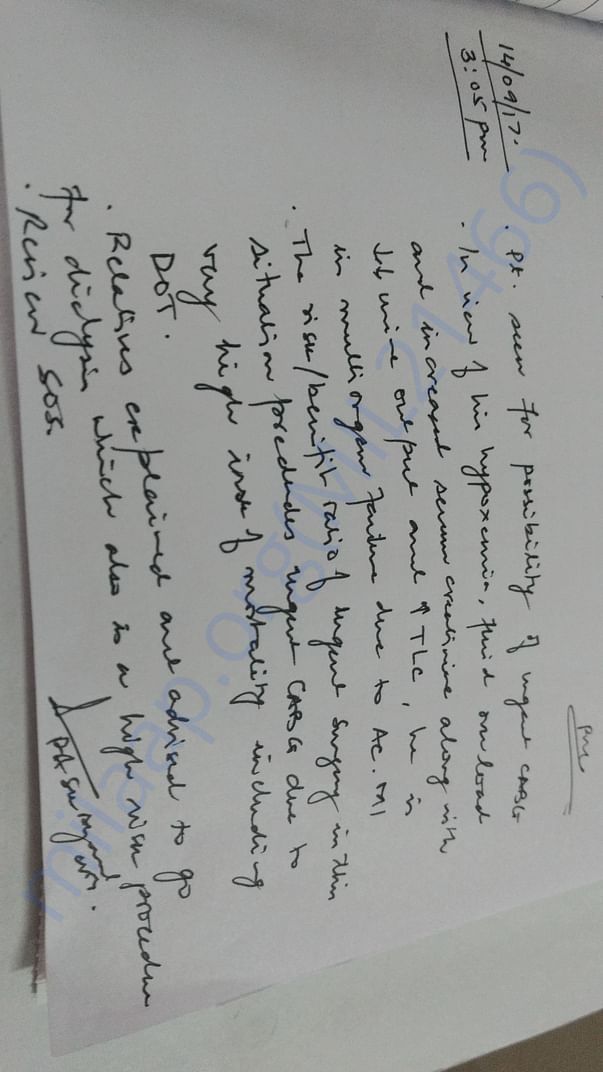 14/09/17.
3:05 pm
. Pt. seen for possibility of urgent CABG
. In view of his hypoxemia, fluid overload
and increased serum creatinine along with
urine output and ↑TLC, he is
in multiorgan failure due to Ac. MI
. The risk/benefit ratio of urgent surgery in this
situation precludes urgent CABG due to
very high of mortality including
DOT.
. Relatives explained and advised to go
for dialysis which also is a high risk procedure
. Review SOS.
milaap.org